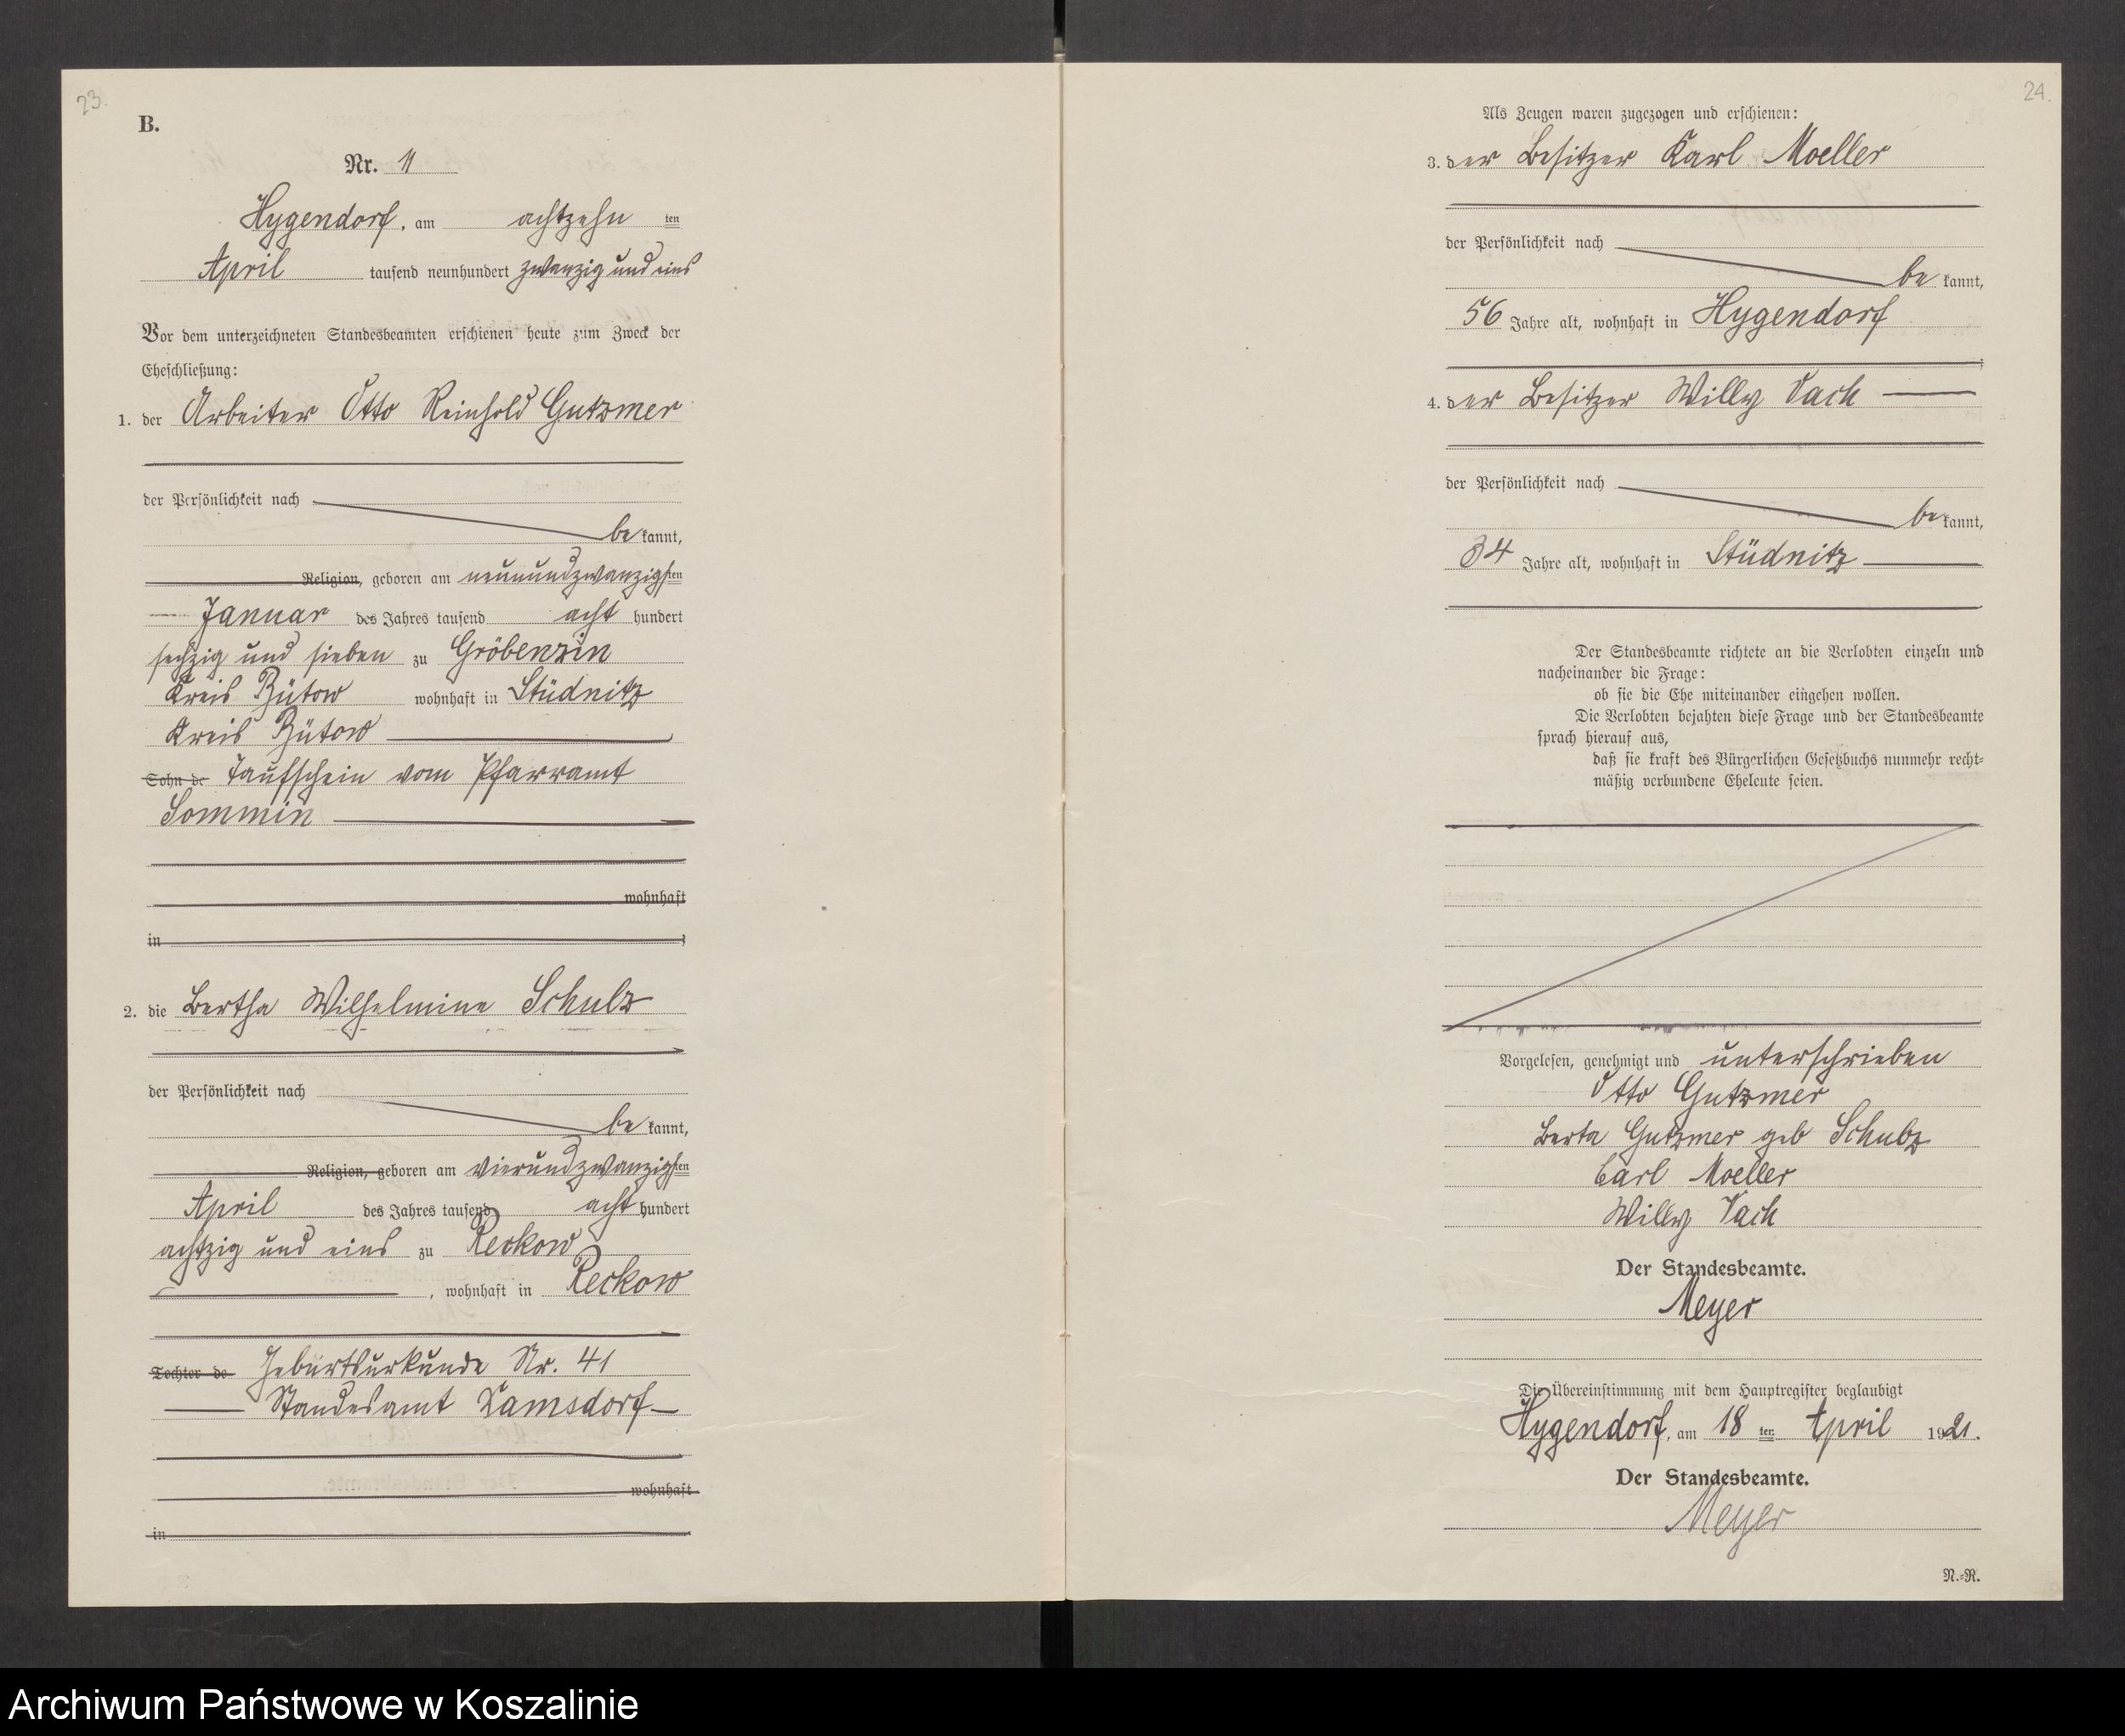 23.
B.
Nr. 11
Hygendorf, am achtzehn ten
April tausend neunhundert zwanzig und eins
Vor dem unterzeichneten Standesbeamten erschienen heute zum Zweck der
Eheschließung:
1. der Arbeiter Otto Reinhold Gutzmer
der Persönlichkeit nach
be kannt,
Religion, geboren am neunundzwanzigsten
Januar des Jahres tausend acht hundert
sechzig und sieben zu Gröbenzin
Kreis Bütow wohnhaft in Stüdnitz
Kreis Bütow
Sohn de Taufschein vom Pfarramt
Sommin
wohnhaft
in
2. die Bertha Wilhelmine Schulz
der Persönlichkeit nach
be kannt,
Religion, geboren am vierundzwanzigsten
April des Jahres tausend acht hundert
achtzig und eins zu Reckow
, wohnhaft in Reckow
Tochter de Geburtsurkunde Nr. 41
Standesamt Damsdorf
wohnhaft
in
24.
Als Zeugen waren zugezogen und erschienen:
3. der Besitzer Karl Moeller
der Persönlichkeit nach
be kannt,
56 Jahre alt, wohnhaft in Hygendorf
4. der Besitzer Willy Vach
der Persönlichkeit nach
be kannt,
34 Jahre alt, wohnhaft in Stüdnitz
Der Standesbeamte richtete an die Verlobten einzeln und
nacheinander die Frage:
ob sie die Ehe miteinander eingehen wollen.
Die Verlobten bejahten diese Frage und der Standesbeamte
sprach hierauf aus,
daß sie kraft des Bürgerlichen Gesetzbuchs nunmehr recht-
mäßig verbundene Eheleute seien.
Vorgelesen, genehmigt und unterschrieben
Otto Gutzmer
Berta Gutzmer geb Schulz
Carl Moeller
Willy Vach
Der Standesbeamte.
Meyer
Die Übereinstimmung mit dem Hauptregister beglaubigt
Hygendorf, am 18 ten April 1921.
Der Standesbeamte.
Meyer
N.-R.
Archiwum Państwowe w Koszalinie